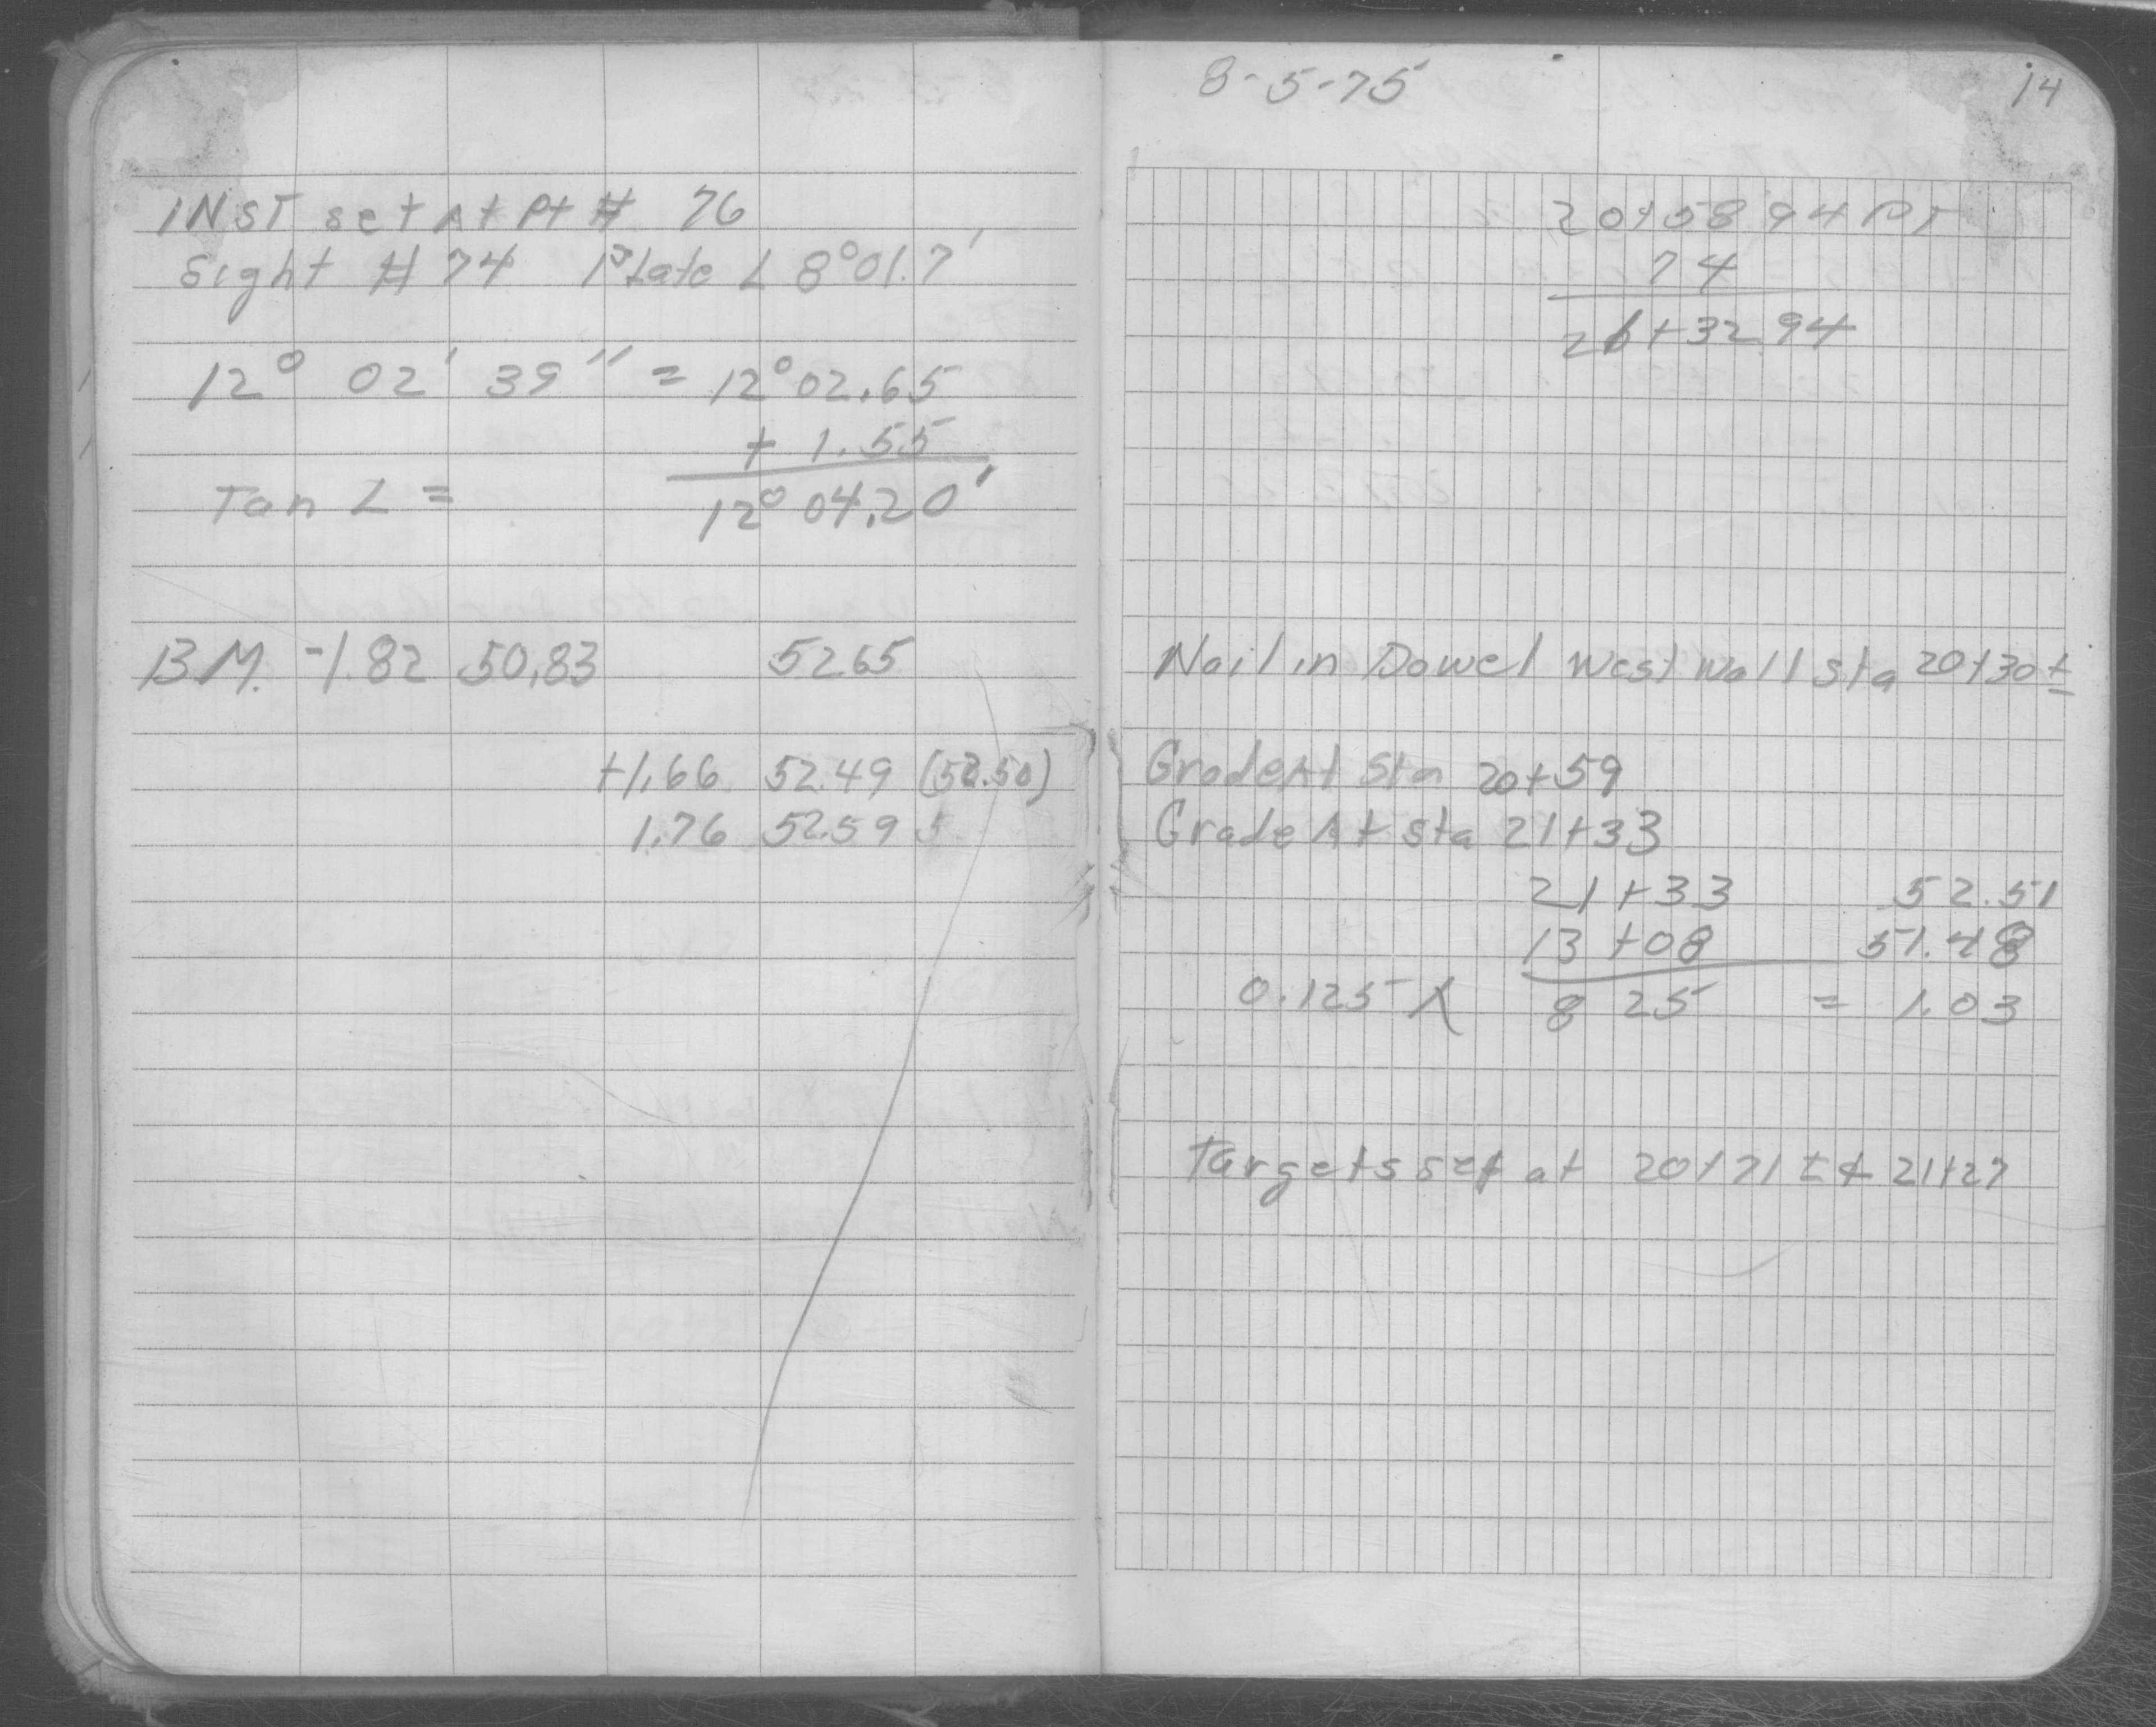 INST set At Pt # 76
Sight # 74 Plate ∠ 8°01.7'
12° 02' 39" = 12°02.65
+ 1.55
Tan ∠ = 12° 04.20'
B M. -1.82 50.83 52.65
+1.66 52.49 (52.50)
1.76 52.59 5
8-5-75
14
20+58 94 PT
74
21+32 94
Nail in Dowel West Wall Sta 20+30±
Grade At Sta 20+59
Grade At sta 21+33
21+33 52.51
13+08 51.48
0.125 X 8 25 = 1.03
Targets set at 20+71 ± & 21+27